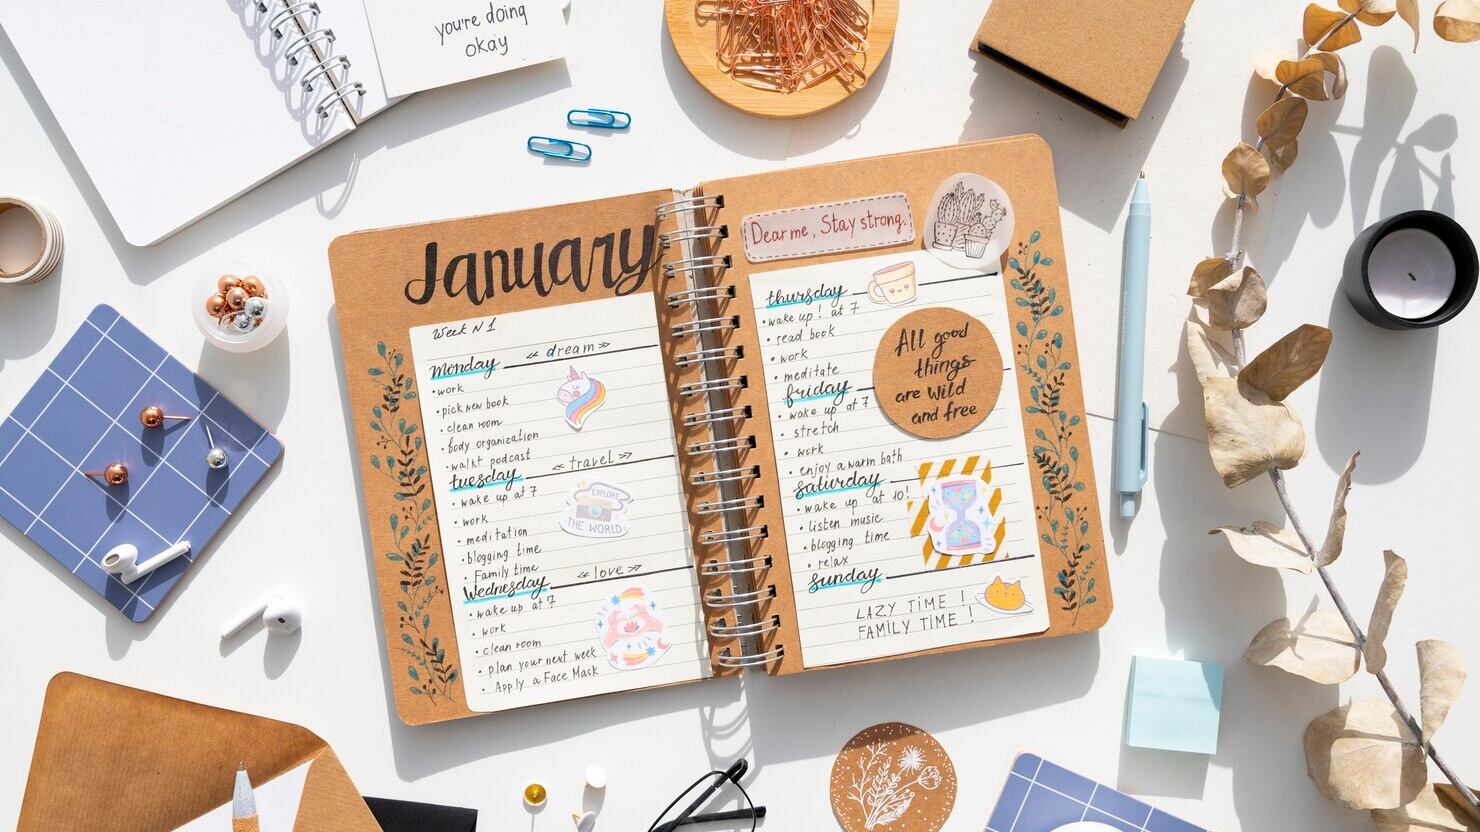 you're doing
okay
January
Week N 1
monday
« dream »
• work
• pick new book
• clean room
• body organization
• walk+ podcast
tuesday
« travel »
• wake up at 7
• work
• meditation
• blogging time
• Family time
EXPLORE
THE WORLD
Wednesday
« love »
• wake up at 7
• work
• clean room
• plan your next week
• Apply a Face Mask
Dear me, Stay strong.
thursday
• wake up! at 7
• read book
• work
• meditate
friday
• wake up at 7
• stretch
• work
• enjoy a warm bath
All good
things
are wild
and free
saturday
• wake up at 10!
• listen music
• blogging time
• relax
sunday
LAZY TIME !
FAMILY TIME !